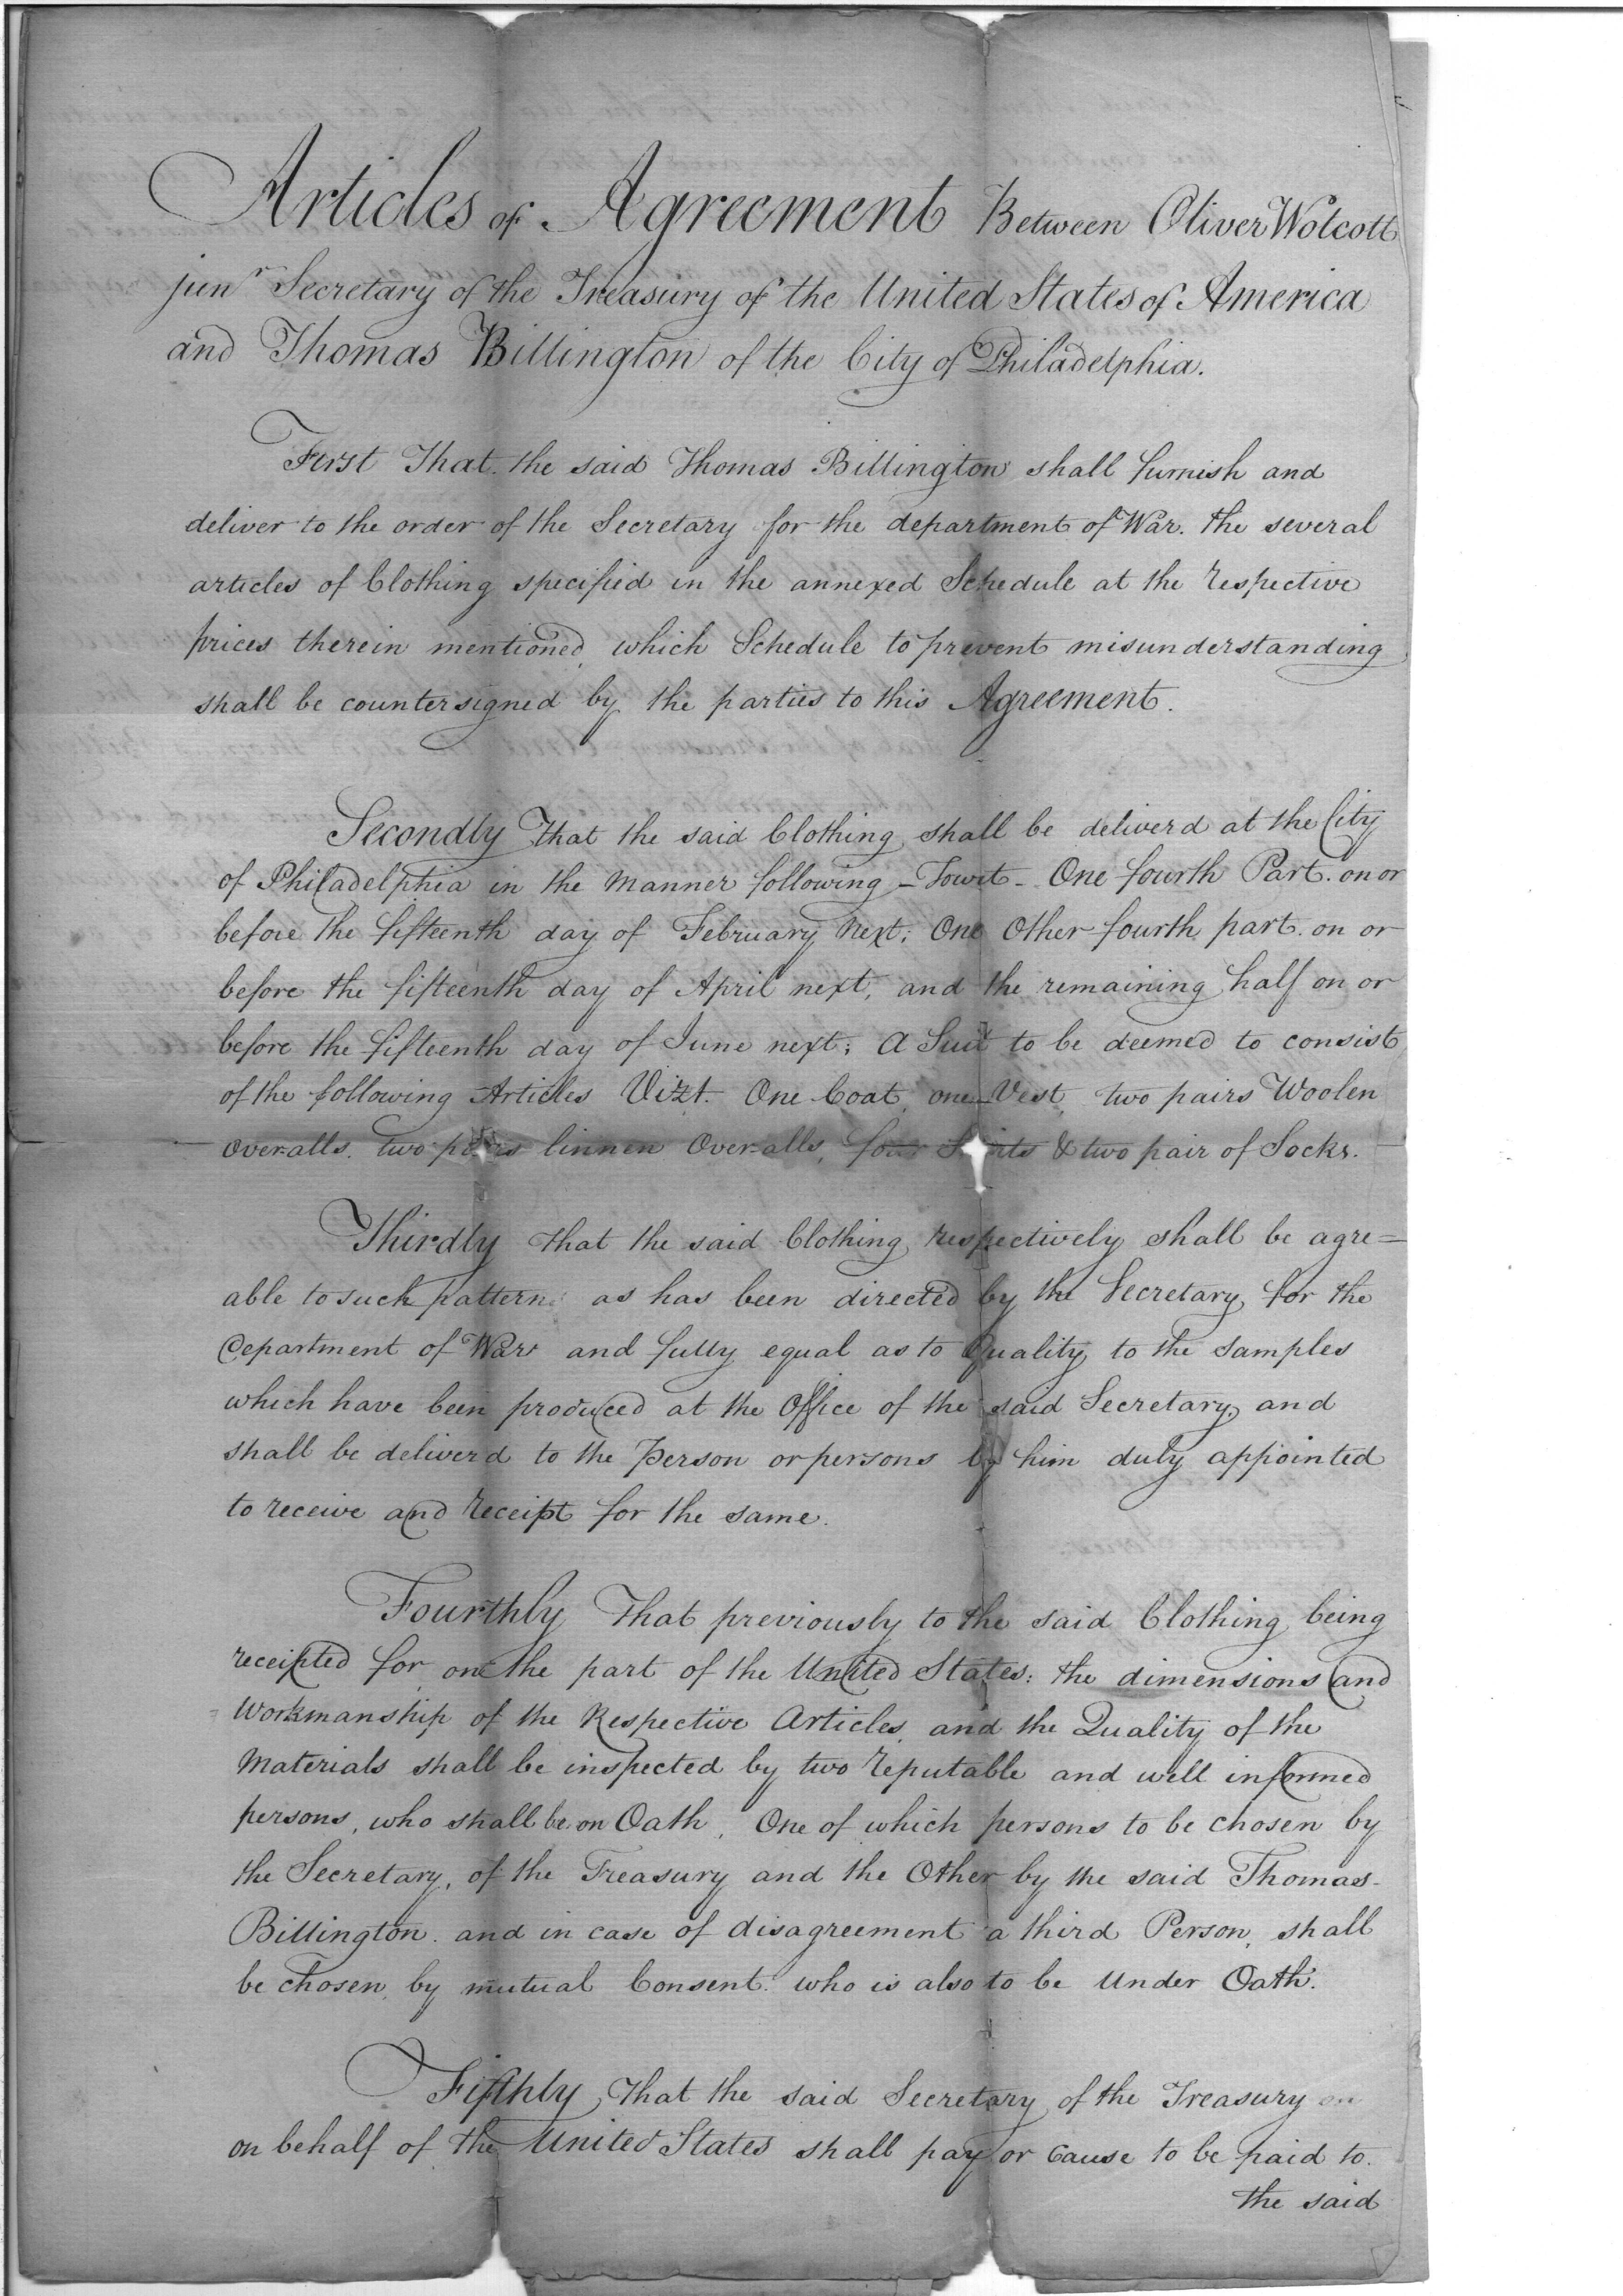 Articles of Agreement Between Oliver Wolcott
junr Secretary of the Treasury of the United States of America
and Thomas Billington of the City of Philadelphia.
First That the said Thomas Billington shall furnish and
deliver to the order of the Secretary for the department of War. the several
articles of Clothing specified in the annexed Schedule at the respective
prices therein mentioned, which Schedule to prevent misunderstanding
shall be countersigned by the parties to this Agreement.
Secondly That the said Clothing shall be deliverd at the City
of Philadelphia in the Manner following - Towit - One fourth Part. on or
before the fifteenth day of February Next; One Other fourth part. on or
before the fifteenth day of April next, and the remaining half on or
before the fifteenth day of June next; A Suit to be deemed to consist
of the following Articles Vizt. One Coat, one Vest, two pairs Woolen
Over-alls. two pairs linnen Over-alls, four Shirts & two pair of Socks.
Thirdly that the said Clothing respectively shall be agre=
able to such patterns as has been directed by the Secretary for the
Department of War and fully equal as to Quality to the samples
which have been produced at the Office of the said Secretary, and
shall be deliverd to the Person or persons by him duly appointed
to receive and receipt for the same.
Fourthly That previously to the said Clothing being
receipted for on the part of the United States: the dimensions and
Workmanship of the Respective Articles, and the Quality of the
Materials shall be inspected by two reputable and well informed
persons, who shall be on Oath, One of which persons to be chosen by
the Secretary, of the Treasury and the Other by the said Thomas-
Billington. and in case of disagreement a third Person, shall
be chosen, by mutual Consent. who is also to be Under Oath.
Fifthly, That the said Secretary of the Treasury on
on behalf of the United States shall pay or cause to be paid to.
the said